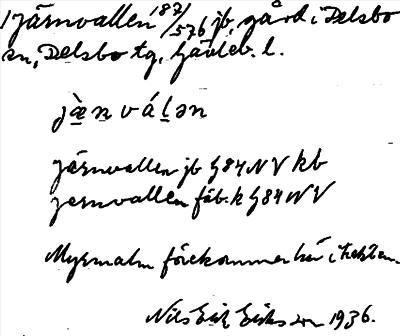 Järnvallen 187/576 jb, gård i Delsbo
sn, Delsbo tg, Gävleb. l.
jæ̀n válən
Järnvallen jb G84NV kb
Jernvallen fäb. k G84NV
Myrmalm förekommer här i trakten.
Nils Erik Eriksson 1936.